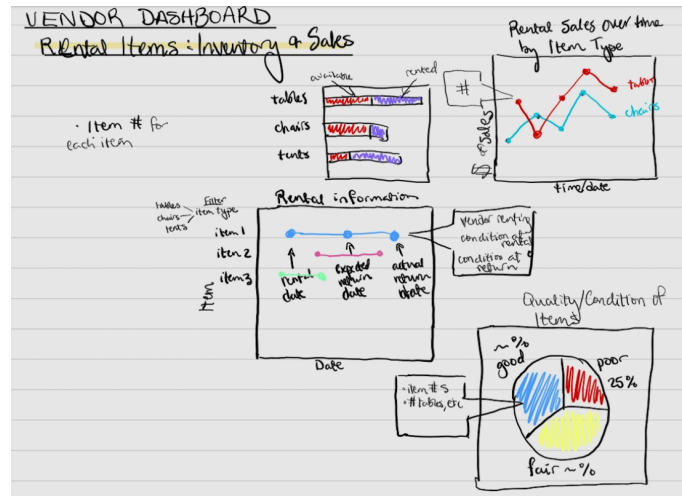 VENDOR DASHBOARD
Rental Items: Inventory & Sales
· Item # for
each item
available
rented
tables
chairs
tents
Rental Sales over time
by Item Type
#
$ of Sales
tables
chairs
time/date
Rental information
tables
chairs
tents
Filter
item type
item 1
item 2
item 3
Item
rental
date
expected
return
date
actual
return
date
Date
vendor renting
condition at
rental
condition at
return
Quality/Condition of
Items
~%
good
poor
25%
fair ~%
· item #s
· # tables, etc